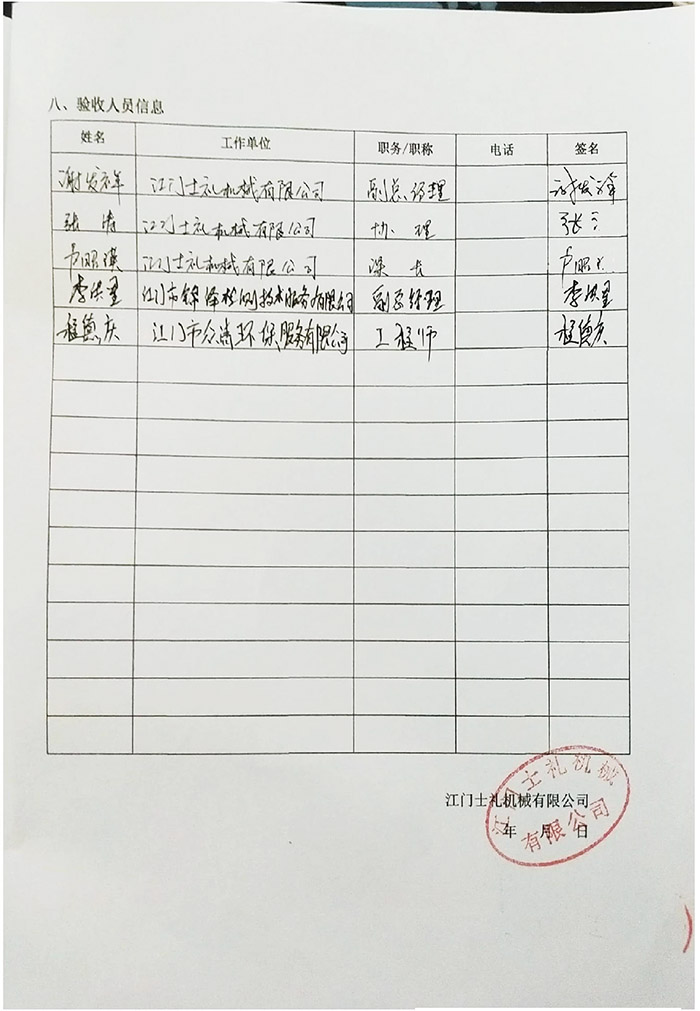 八、验收人员信息
姓名 工作单位 职务/职称 电话 签名
谢发祥 江门士礼机械有限公司 副总经理
张 江门士礼机械有限公司 协理 张
江门士礼机械有限公司 课长
李洪 江门市 检测技术服务有限公司 副总经理 李洪
程德庆 江门市 环保服务有限公司 工程师 程德庆
江门士礼机械有限公司
年 月 日
江门士礼机械
有限公司